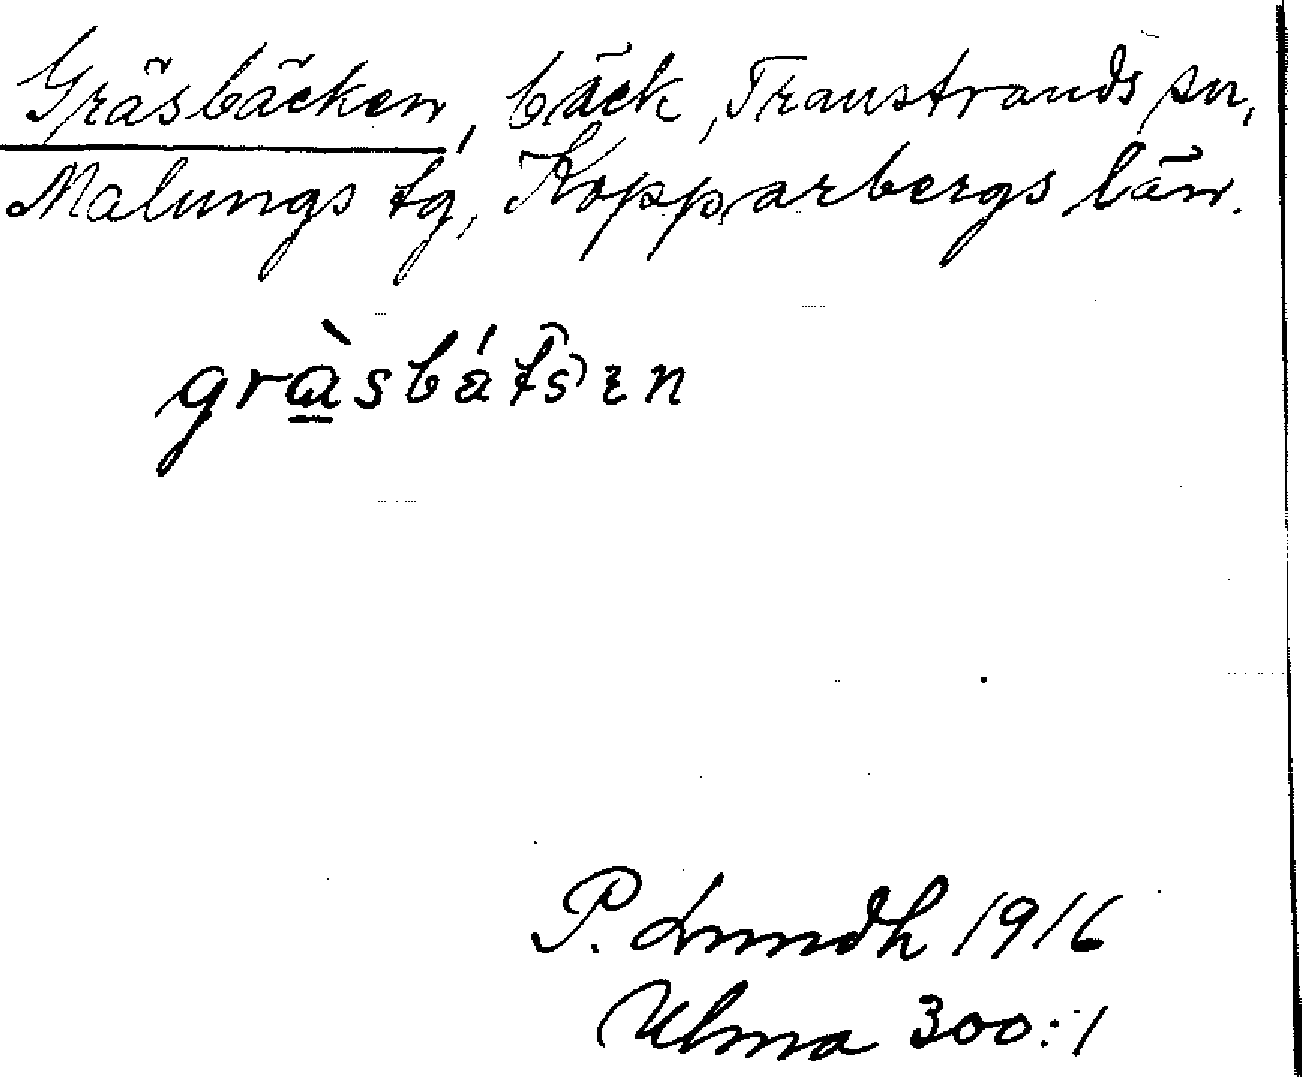 Gräsbäcken, bäck, Transtrands sn,
Malungs tg, Kopparbergs län.
grà̱sbátsɪn
P. Lundh 1916
Ulma 300:1